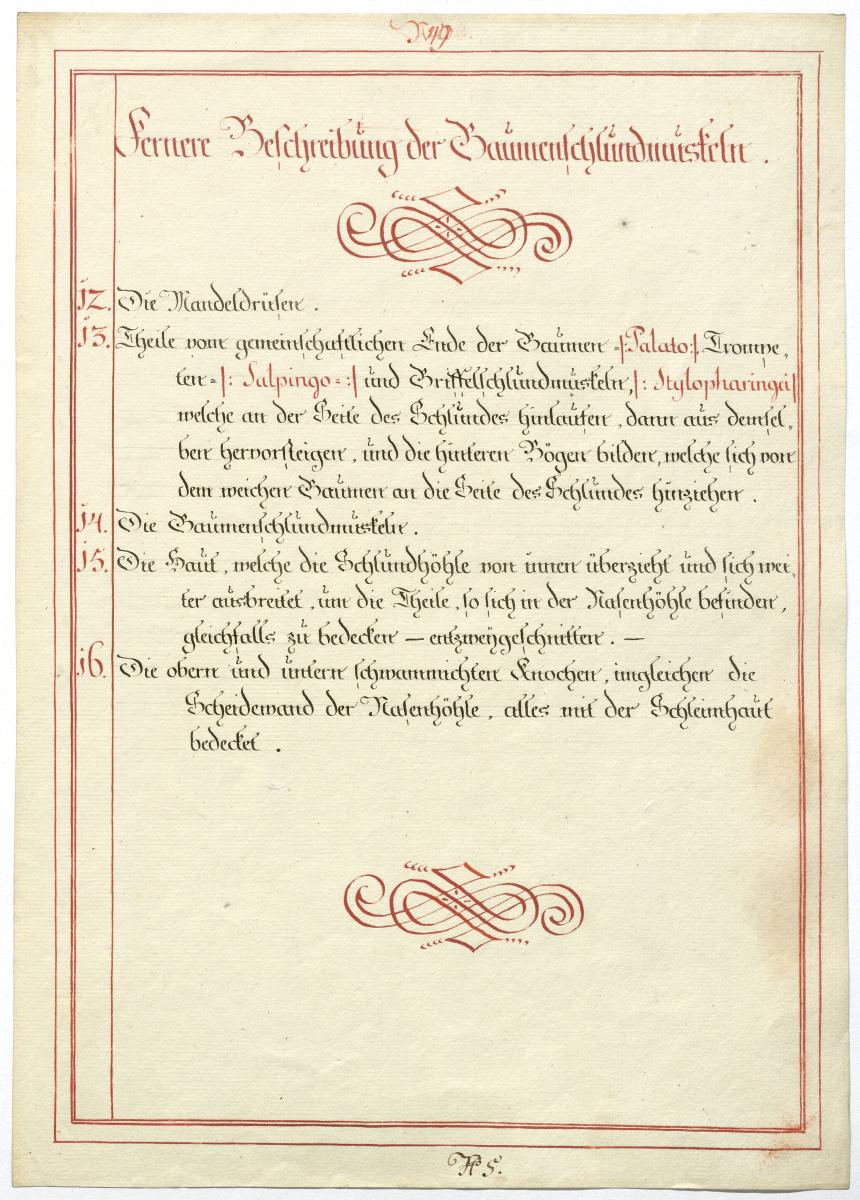 N 49.
Fernere Beschreibung der Gaumenschlundmuskeln.
12. Die Mandeldrüsen.
13. Theile vom gemeinschaftlichen Ende der Gaumen =|:Palato:|. Trompe„
ten=|: Salpingo=:| und Griffelschlundmuskeln,|: Stylopharingæi|
welche an der Seite des Schlundes hinlaufen, dann aus demsel„
ben hervorsteigen, und die hinteren Bögen bilden, welche sich von
dem weichen Gaumen an die Seite des Schlundes hinziehen.
14. Die Gaumenschlundmuskeln.
15. Die Haut, welche die Schlundhöhle von innen überzieht und sich wei„
ter ausbreitet, um die Theile, so sich in der Nasenhöhle befinden,
gleichfalls zu bedecken — entzweygeschnitten. —
16. Die obern und untern schwammichten Knochen, imgleichen die
Scheidewand der Nasenhöhle, alles mit der Schleimhaut
bedecket.